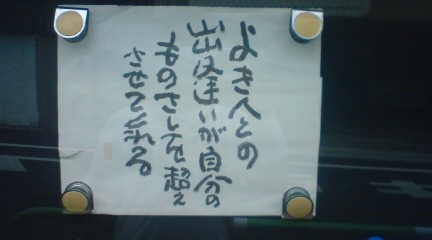 よき人との
出逢いが自分の
ものさしを超え
させてくれる